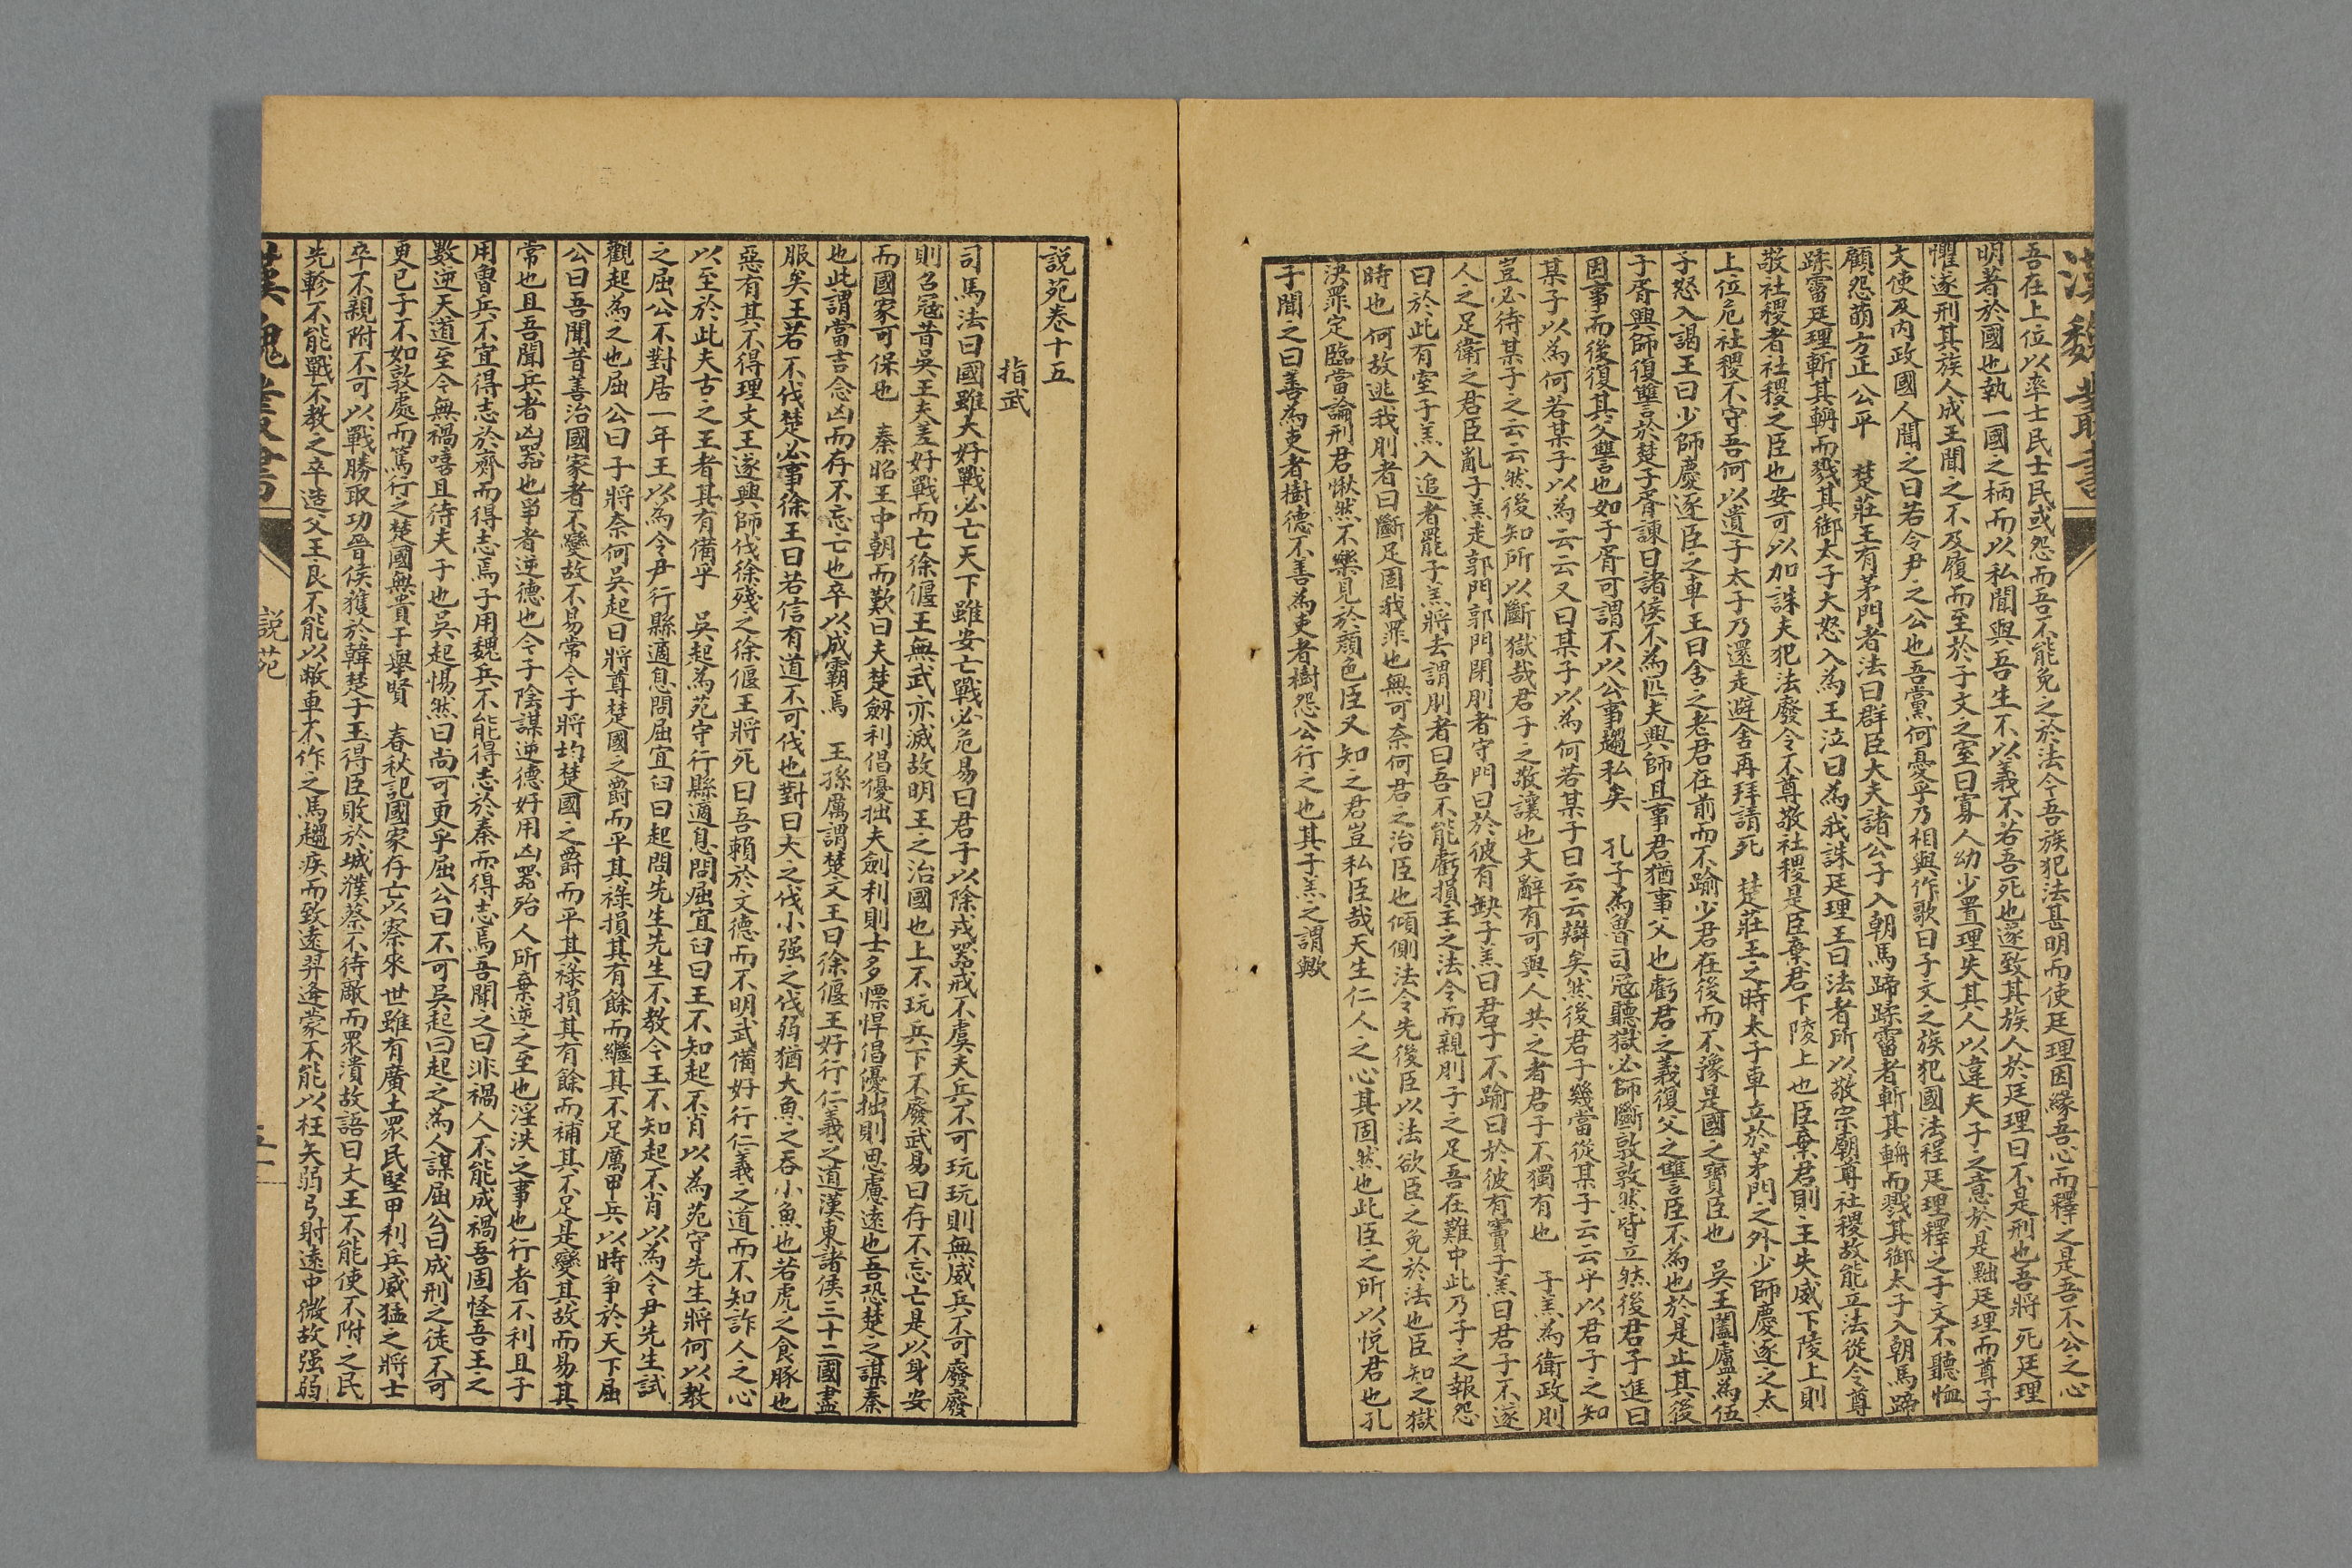 漢魏叢書
吾在上位以率士民士民或怨而吾不能免之於法今吾族犯法甚明而使廷理因緣吾心而釋之是吾不公之心
明著於國也執一國之柄而以私聞與吾生不以義不若吾死也遂致其族人於廷理曰不是刑也吾將死廷理
懼遂刑其族人成王聞之不及履而至於子文之室曰寡人幼少置理失其人以違夫子之意於是黜廷理而尊子
文使及內政國人聞之曰若令尹之公也吾黨何憂乎乃相與作歌曰子文之族犯國法程廷理釋之子文不聽恤
顧怨萌方正公平　楚莊王有茅門者法曰群臣大夫諸公子入朝馬蹄蹂霤者斬其輈而戮其御太子入朝馬蹄
蹂霤廷理斬其輈而戮其御太子大怒入為王泣曰為我誅廷理王曰法者所以敬宗廟尊社稷故能立法從令尊
敬社稷者社稷之臣也安可以加誅夫犯法廢令不尊敬社稷是臣棄君下陵上也臣棄君則主失威下陵上則
上位危社稷不守吾何以遺子太子乃還走避舍再拜請死　楚莊王之時太子車立於茅門之外少師慶逐之太
子怒入謁王曰少師慶逐臣之車王曰舍之老君在前而不踰少君在後而不豫是國之寶臣也　吳王闔廬為伍
子胥興師復讐於楚子胥諫曰諸侯不為匹夫興師且事君猶事父也虧君之義復父之讐臣不為也於是止其後
因事而後復其父讐也如子胥可謂不以公事趨私矣　孔子為魯司冦聽獄必師斷敦敦然皆立然後君子進曰
某子以為何若某子以為云云又曰某子以為何若某子曰云云辯矣然後君子幾當從某子云云乎以君子之知
豈必待某子之云云然後知所以斷獄哉君子之敬讓也文辭有可與人共之者君子不獨有也　子羔為衛政刖
人之足衛之君臣亂子羔走郭門郭門閉刖者守門曰於彼有缺子羔曰君子不踰曰於彼有竇子羔曰君子不遂
曰於此有室子羔入追者罷子羔將去謂刖者曰吾不能虧損主之法令而親刖子之足吾在難中此乃子之報怨
時也何故逃我刖者曰斷足固我罪也無可奈何君之治臣也傾側法令先後臣以法欲臣之免於法也臣知之獄
決罪定臨當論刑君愀然不樂見於顏色臣又知之君豈私臣哉天生仁人之心其固然也此臣之所以悅君也孔
子聞之曰善為吏者樹德不善為吏者樹怨公行之也其子羔之謂歟
說苑卷十五
指武
司馬法曰國雖大好戰必亡天下雖安亡戰必危易曰君子以除戎器戒不虞夫兵不可玩玩則無威兵不可廢廢
則召冦昔吳王夫差好戰而亡徐偃王無武亦滅故明王之治國也上不玩兵下不廢武易曰存不忘亡是以身安
而國家可保也　秦昭王中朝而歎曰夫楚劔利倡優拙夫劍利則士多慓悍倡優拙則思慮遠也吾恐楚之謀秦
也此謂當吉念凶而存不忘亡也卒以成霸焉　王孫厲謂楚文王曰徐偃王好行仁義之道漢東諸侯三十二國盡
服矣王若不伐楚必事徐王曰若信有道不可伐也對曰大之伐小强之伐弱猶大魚之吞小魚也若虎之食豚也
惡有其不得理文王遂興師伐徐殘之徐偃王將死曰吾賴於文德而不明武備好行仁義之道而不知詐人之心
以至於此夫古之王者其有備乎　吳起為苑守行縣適息問屈宜臼曰王不知起不肖以為苑守先生將何以教
之屈公不對居一年王以為令尹行縣適息問屈宜臼曰起問先生先生不教今王不知起不肖以為令尹先生試
觀起為之也屈公曰子將奈何吳起曰將尊楚國之爵而平其祿損其有餘而繼其不足厲甲兵以時爭於天下屈
公曰吾聞昔善治國家者不變故不易常今子將均楚國之爵而平其祿損其有餘而補其不足是變其故而易其
常也且吾聞兵者凶器也爭者逆德也今子陰謀逆德好用凶器殆人所棄逆之至也淫泆之事也行者不利且子
用魯兵不宜得志於齊而得志焉子用魏兵不能得志於秦而得志焉吾聞之曰非禍人不能成禍吾固怪吾王之
數逆天道至今無禍嘻且待夫子也吳起惕然曰尚可更乎屈公曰不可吳起曰起之為人謀屈公曰成刑之徒不可
更已子不如敦處而篤行之楚國無貴于舉賢　春秋記國家存亡以察來世雖有廣土眾民堅甲利兵威猛之將士
卒不親附不可以戰勝取功晉侯獲於韓楚子玉得臣敗於城濮蔡不待敵而眾潰故語曰文王不能使不附之民
先軫不能戰不教之卒造父王良不能以敝車不作之馬趨疾而致遠羿逄蒙不能以枉矢弱弓射遠中微故强弱
漢魏叢書
說苑